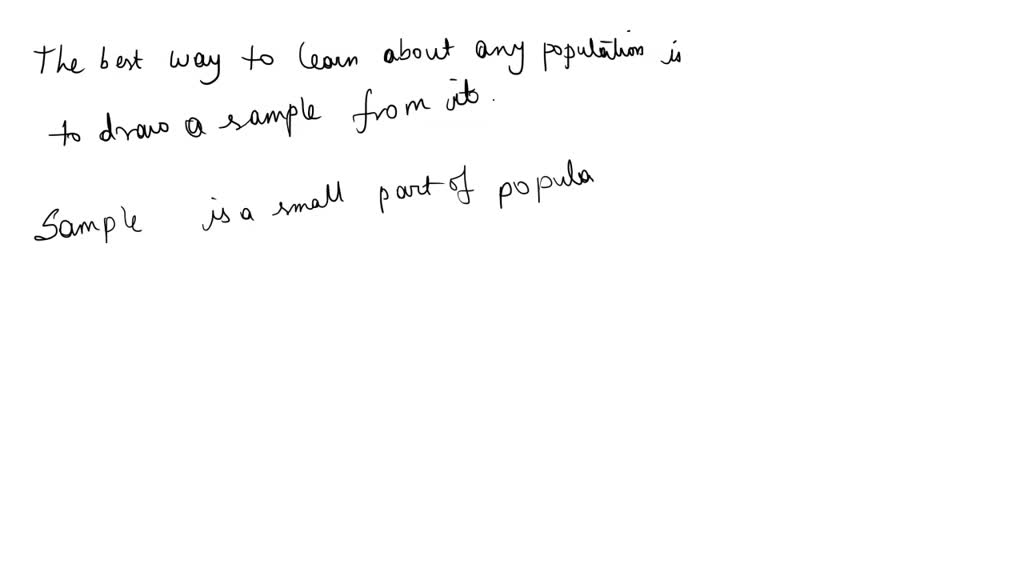 The best way to learn about any population is
to draw a sample from it.
Sample is a small part of popula